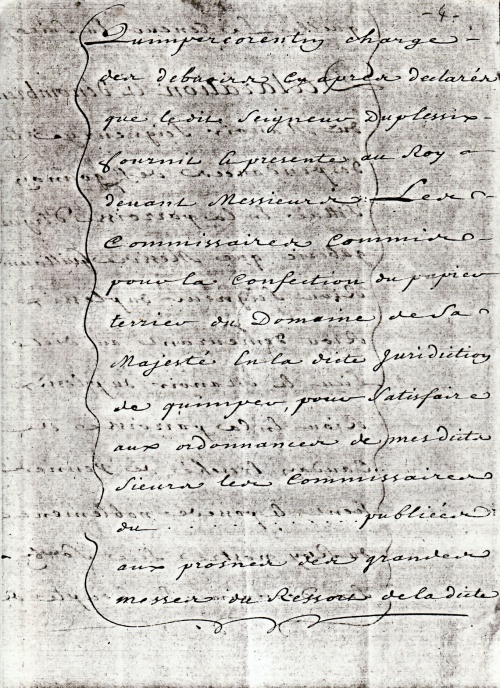 - 4 -
Quimpercorentin charge -
des debvoirs Cy apres declarés
que ledit Seigneur Duplessix -
fournit la presente au Roy -
devant Messieurs Les -
Commissaires Commis -
pour la Confection du papier
terrier du Domaine de Sa -
Majesté En la dicte Juridiction
de quimper, pour Satisfaire
aux ordonnances de mesdicts
Sieurs les Commissaires
du . . . . . . . . . . . publiées
aux prosnes des grandes
messes du Ressort de la dicte